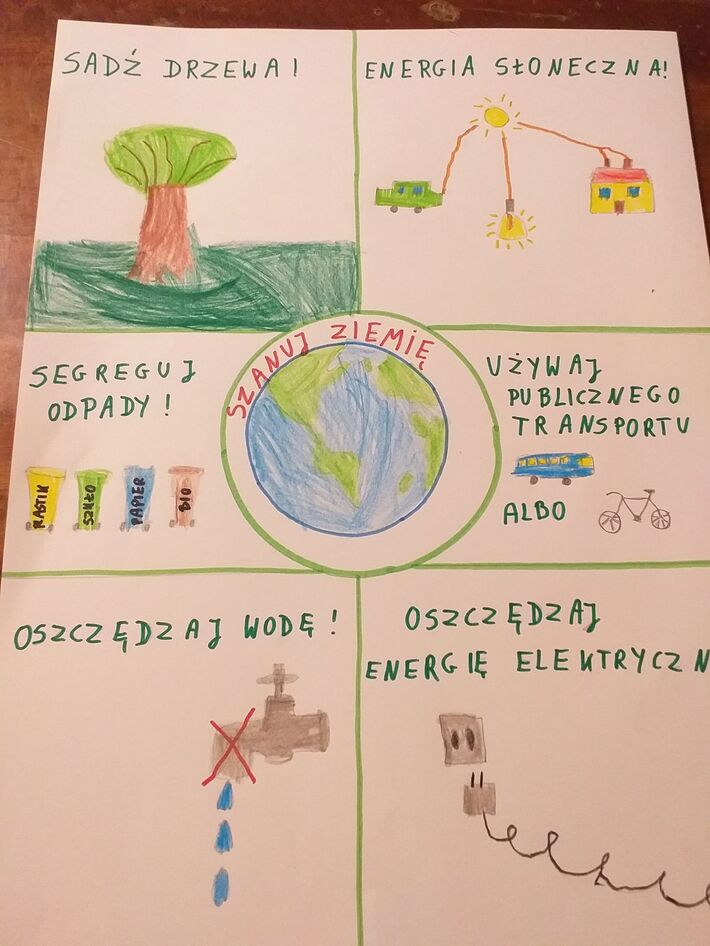 SADŹ DRZEWA!
ENERGIA SŁONECZNA!
SZANUJ ZIEMIĘ
SEGREGUJ
ODPADY!
PLASTIK
SZKŁO
PAPIER
BIO
UŻYWAJ
PUBLICZNEGO
TRANSPORTU
ALBO
OSZCZĘDZAJ WODĘ!
OSZCZĘDZAJ
ENERGIĘ ELEKTRYCZN